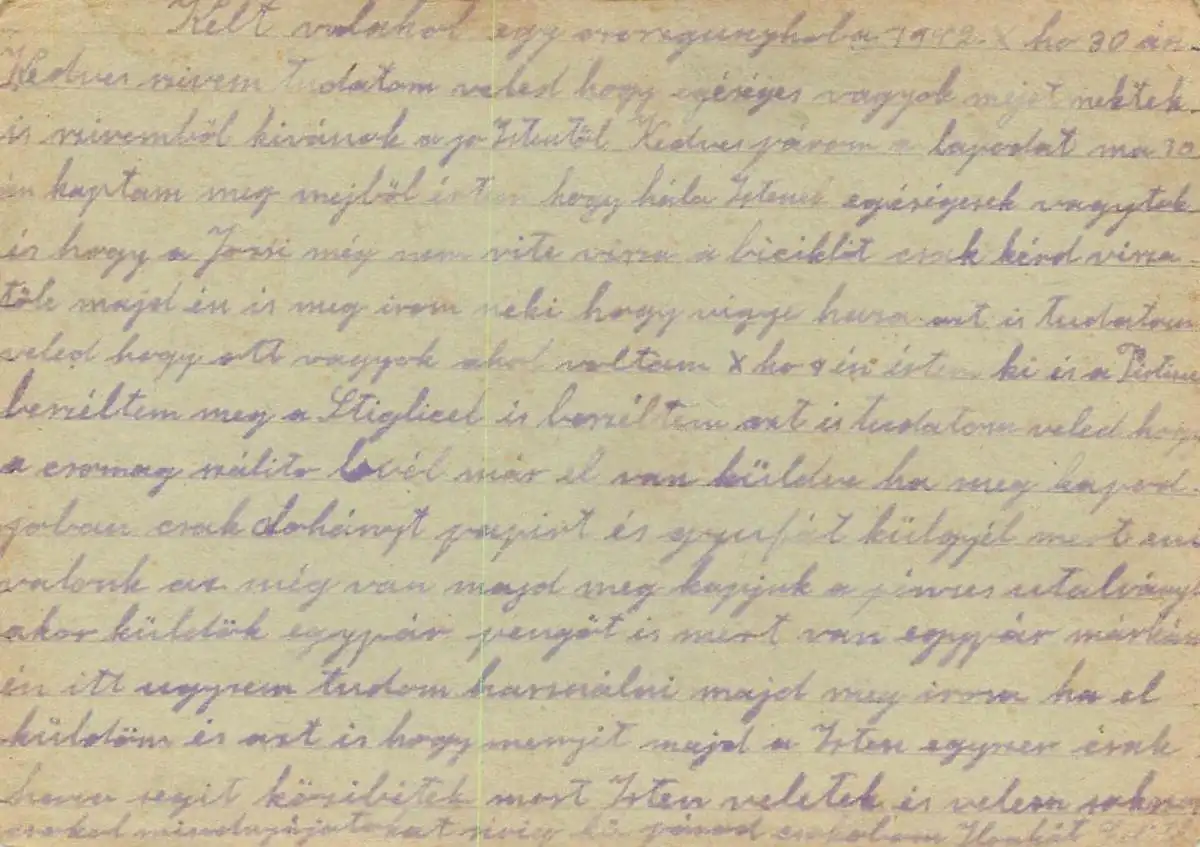 Kelt valahol egy oroszgunyhoba 1942 X ho 30 án
Kedves szivem tudatom veled hogy egéséges vagyok mejet nektek
is szivemböl kivánok a jo Istentöl Kedves párom a lapodat ma 30
án kaptam meg mejböl értem hogy hála Istenek egéségesek vagytok
és hogy a Jossi még nem vite visza a biciklit csak kérd visza
töle majd én is meg irom neki hogy vigye haza azt is tudatom
veled hogy ott vagyok ahol voltam X ho én értem ki és a
beszéltem meg a Stiglicel is beszéltem azt is tudatom veled hogy
a csomag szálito levél már el van küldve ha meg kapod
joban csak dohányt papirt és gyufát külgyél mert eni
valonk az még van majd meg kapjuk a pénzes utalvány
akor küldök egypár pengöt is mert van egypár márkám
én itt ugysem tudom hasznáni majd meg irom ha el
küldöm és azt is hogy menyit majd a Isten egyszer csak
haza segit közibétek most Isten veletek és velem sokszor
csokol mindnyájatokat hü párod csokolom Ilonkát